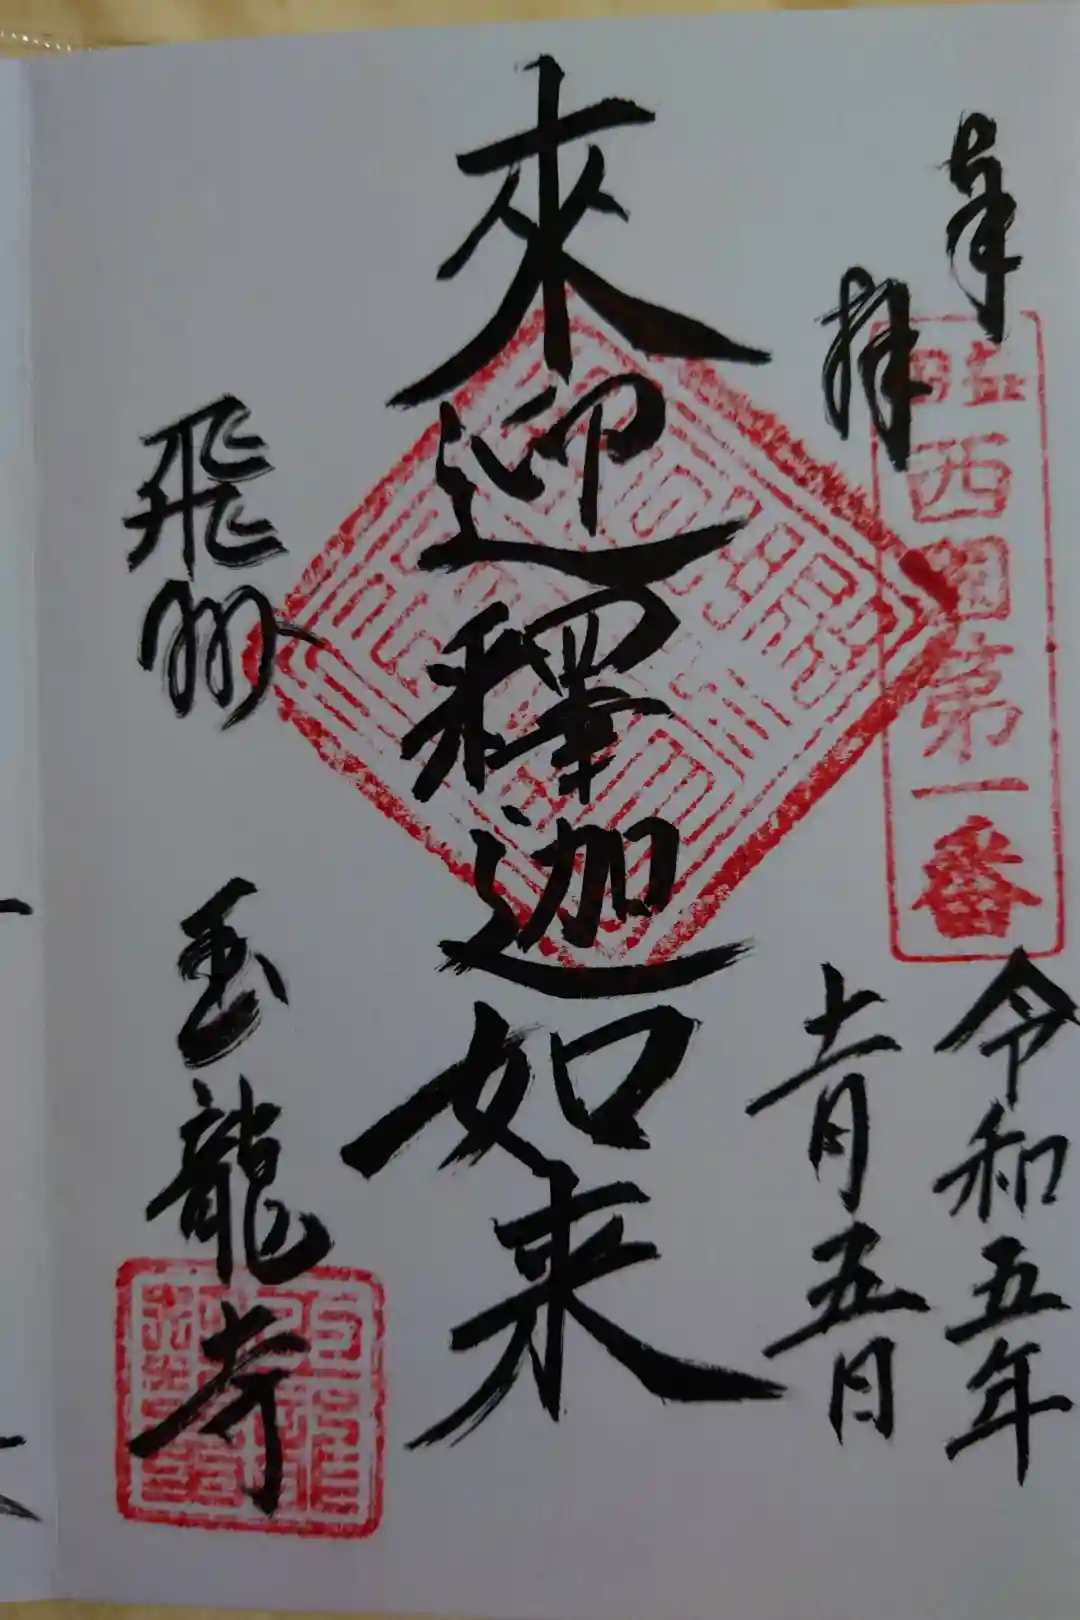 奉拝
西國第一番
令和五年
十一月五日
來迎釋迦如来
飛州
玉龍寺